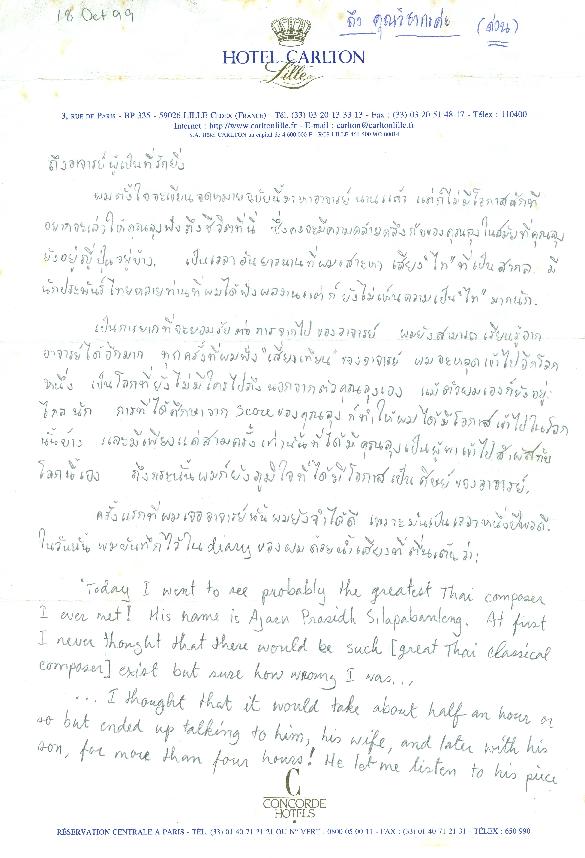 18 Oct 99
ถึง คุณวิชาเดช (ด่วน)
HOTEL CARLTON
Lille
3, RUE DE PARIS - BP 335 - 59026 LILLE CEDEX (FRANCE) - TÉL. (33) 03 20 13 33 13 - FAX : (33) 03 20 51 48 17 - TÉLEX : 110400
Internet : http://www.carltonlille.fr - E-mail : carlton@carltonlille.fr
ถึงอาจารย์ผู้เป็นที่รักยิ่ง
ผมตั้งใจจะเขียนจดหมายฉบับนี้มาหาอาจารย์นานแล้ว แต่ก็ไม่มีโอกาสสักที
อยากจะเล่าให้คุณลุงฟังถึงชีวิตที่นี่ ซึ่งคงจะมีความคล้ายคลึงกับของคุณลุงในสมัยที่คุณลุง
ยังอยู่ญี่ปุ่นอยู่บ้าง. เป็นเวลาอันยาวนานที่ผมเสาะหา เสียง "ไท" ที่เป็นสากล มี
นักประพันธ์ไทยหลายท่านที่ผมได้ฟังผลงานแต่ก็ยังไม่เห็นความเป็น "ไท" มากนัก.
เป็นการยากที่จะยอมรับต่อการจากไปของอาจารย์ ผมยังสามารถเรียนรู้จาก
อาจารย์ได้อีกมาก ทุกครั้งที่ผมฟัง "เสียงเทียน" ของอาจารย์ ผมจะหลุดเข้าไปอีกโลก
หนึ่ง เป็นโลกที่ยังไม่มีใครไปถึงนอกจากตัวคุณลุงเอง แม้ตัวผมเองก็ยังอยู่
ไกลนัก การที่ได้ศึกษาจาก Score ของคุณลุง ก็ทำให้ผมได้มีโอกาสเข้าไปในโลก
นั้นบ้าง และมีเพียงแค่สามครั้งเท่านั้นที่ได้มีคุณลุงเป็นผู้พาเข้าไปสัมผัสกับ
โลกนี้เอง ถึงกระนั้นผมก็ยังภูมิใจที่ได้มีโอกาสเป็นศิษย์ของอาจารย์.
ครั้งแรกที่ผมเจออาจารย์นั้นผมยังจำได้ดี เพราะมันเป็นเวลาหนึ่งปีพอดี.
ในวันนั้น ผมบันทึกไว้ใน diary ของผมด้วยน้ำเสียงที่ตื่นเต้นว่า:
"Today I went to see probably the greatest Thai composer
I ever met! His name is Ajaen Prasidh Silapabanleng. At first
I never thought that there would be such [great Thai classical
composer] exist but sure how wrong I was...
... I thought that it would take about half an hour or
so but ended up talking to him, his wife, and later with his
son, for more than four hours! He let me listen to his piece
C
CONCORDE
HOTELS
RÉSERVATION CENTRALE A PARIS - TÉL. (33) 01 40 71 21 21 OU N° VERT : 0800 05 00 11 - FAX : (33) 01 40 71 21 31 - TÉLEX : 650 990